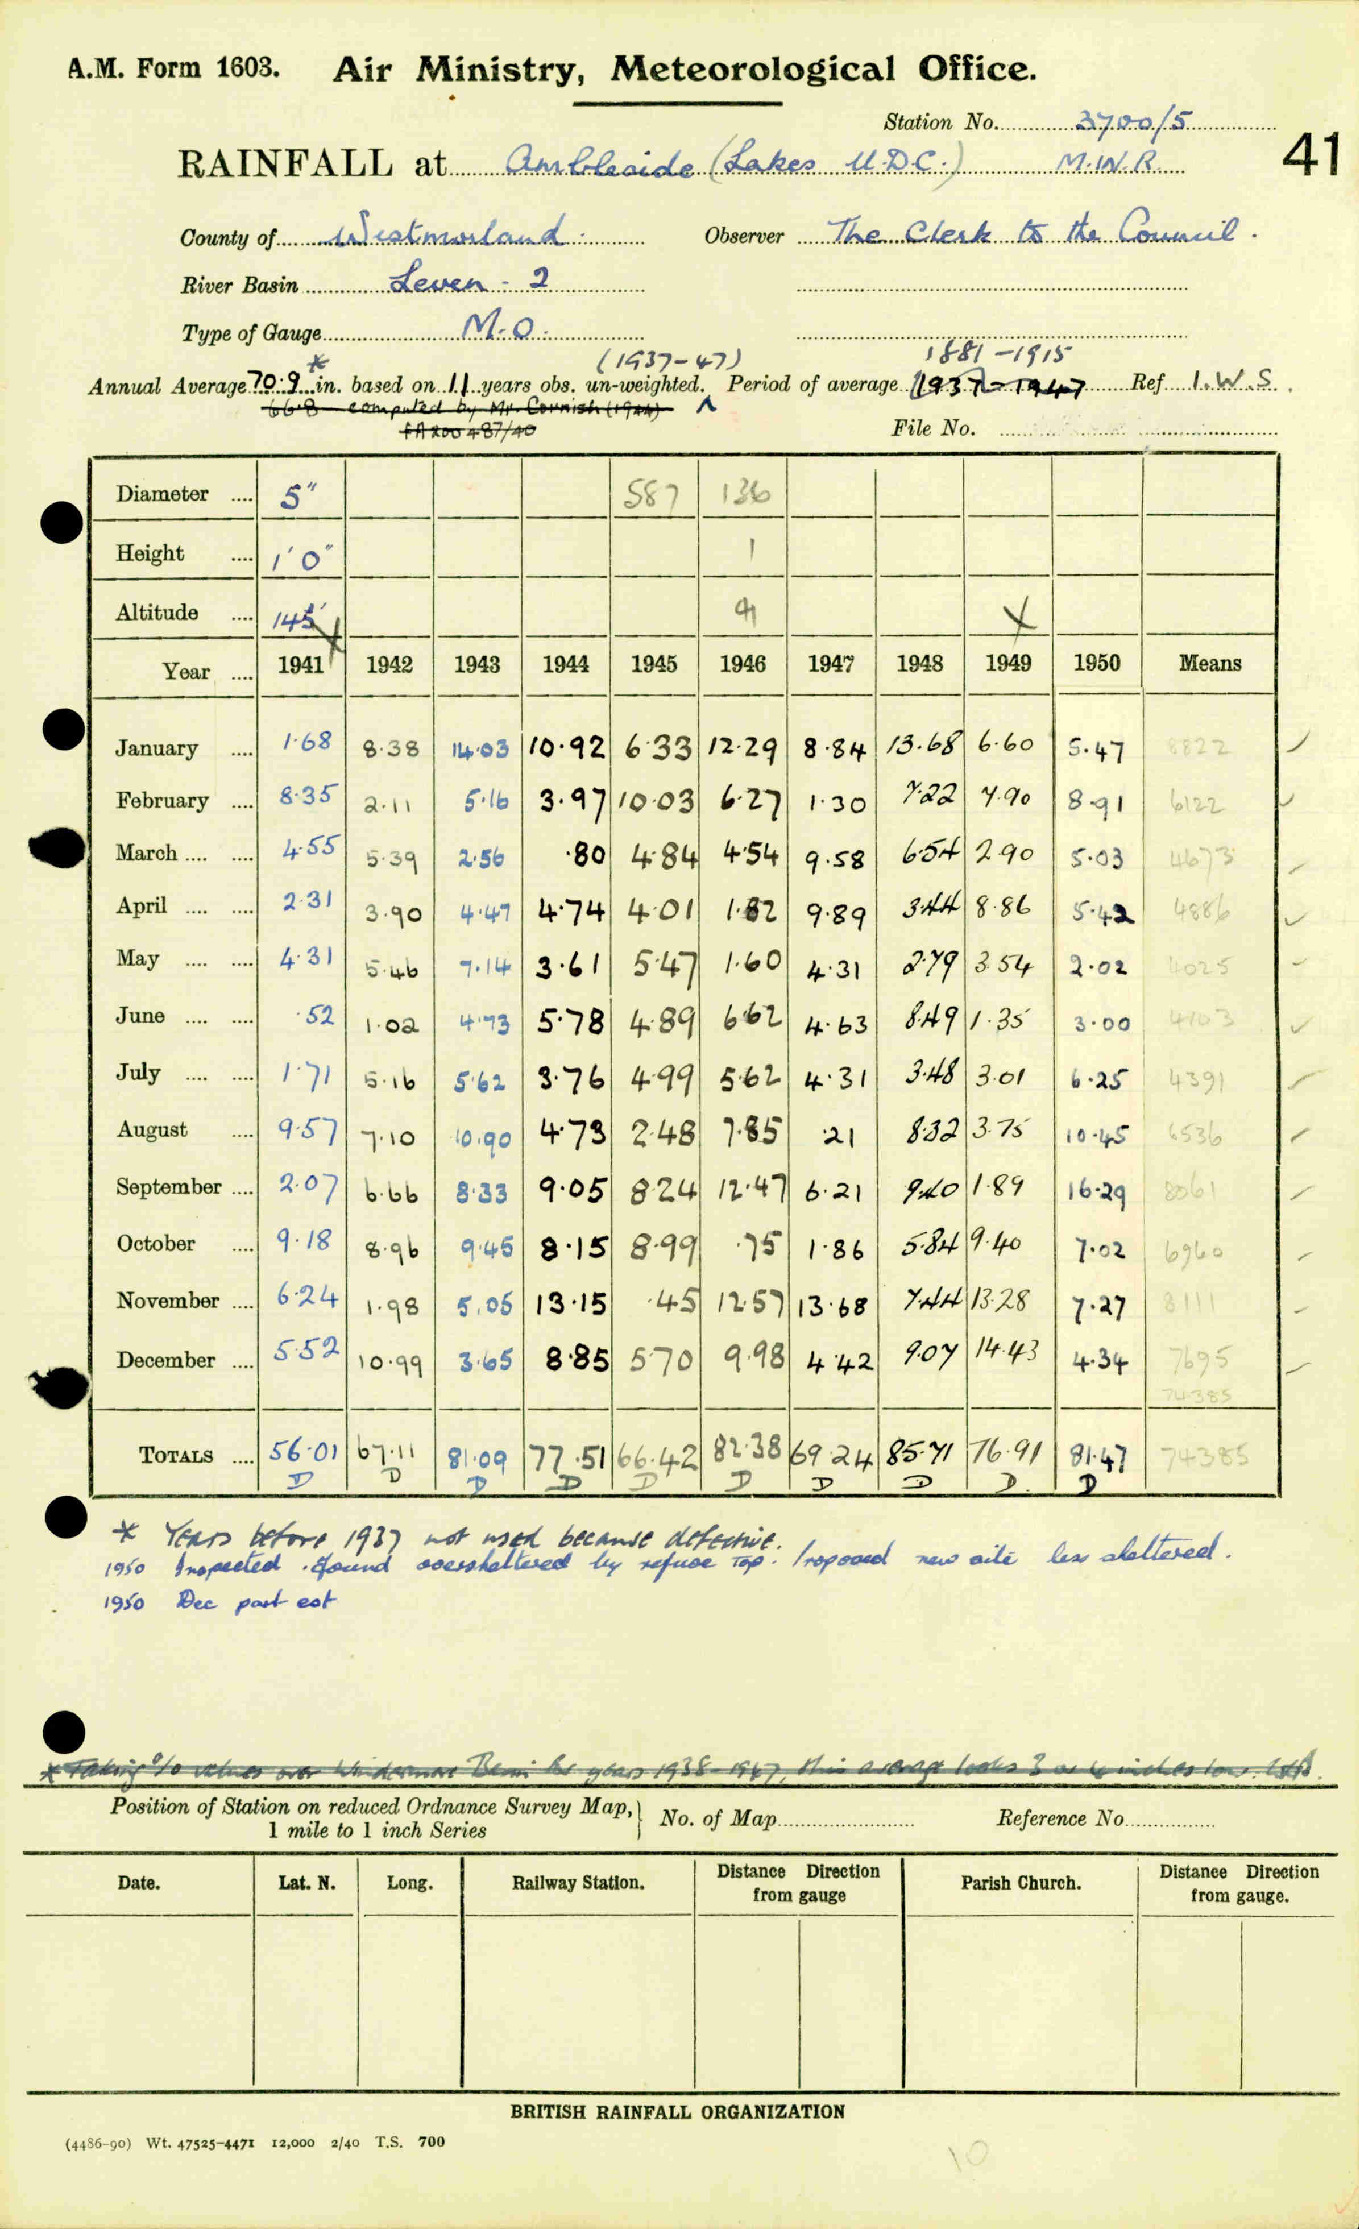 A.M. Form 1603. Air Ministry, Meteorological Office.
Station No. 3700/5
RAINFALL at Ambleside (Lakes U.D.C.) M.W.R. 41
County of Westmorland. Observer The Clerk to the Council.
River Basin Leven - 2
Type of Gauge M.O.
* (1937-47) 1881-1915
Annual Average 70.9 in. based on 11 years obs. un-weighted. Period of average 1937-1947 Ref. I.W.S.
66.8 computed by Mr. Cornish (1944)
487/40 File No.
Diameter 5" 587 136
Height 1' 0" 1
Altitude 145' 9
Year 1941 1942 1943 1944 1945 1946 1947 1948 1949 1950 Means
January 1.68 8.38 14.03 10.92 6.33 12.29 8.84 13.68 6.60 5.47 8822
February 8.35 2.11 5.16 3.97 10.03 6.27 1.30 7.22 7.90 8.91 6122
March 4.55 5.39 2.56 .80 4.84 4.54 9.58 6.54 2.90 5.03 4673
April 2.31 3.90 4.47 4.74 4.01 1.82 9.89 3.44 8.86 5.42 4886
May 4.31 5.46 7.14 3.61 5.47 1.60 4.31 2.79 3.54 2.02 4025
June .52 1.02 4.73 5.78 4.89 6.62 4.63 8.49 1.35 3.00 4103
July 1.71 5.16 5.62 3.76 4.99 5.62 4.31 3.48 3.01 6.25 4391
August 9.57 7.10 10.90 4.73 2.48 7.85 .21 8.32 3.75 10.45 6536
September 2.07 6.66 8.33 9.05 8.24 12.47 6.21 9.40 1.89 16.29 8061
October 9.18 8.96 9.45 8.15 8.99 .75 1.86 5.84 9.40 7.02 6960
November 6.24 1.98 5.05 13.15 .45 12.57 13.68 7.44 13.28 7.27 8111
December 5.52 10.99 3.65 8.85 5.70 9.98 4.42 9.07 14.43 4.34 7695
74.385
TOTALS 56.01 67.11 81.09 77.51 66.42 82.38 69.24 85.71 76.91 81.47 74385
D D D D D D D D D. D
* Years before 1937 not used because defective.
1950 Inspected. Found oversheltered by refuse Tip. Proposed new site less sheltered.
1950 Dec part est
* Taking % values over Windermere Basin for years 1938-1947, this average looks 3 or 4 inches low.
Position of Station on reduced Ordnance Survey Map, 1 mile to 1 inch Series } No. of Map Reference No.
Date. Lat. N. Long. Railway Station. Distance Direction from gauge Parish Church. Distance Direction from gauge.
BRITISH RAINFALL ORGANIZATION
(4486-90) Wt. 47525-4471 12,000 2/40 T.S. 700
10